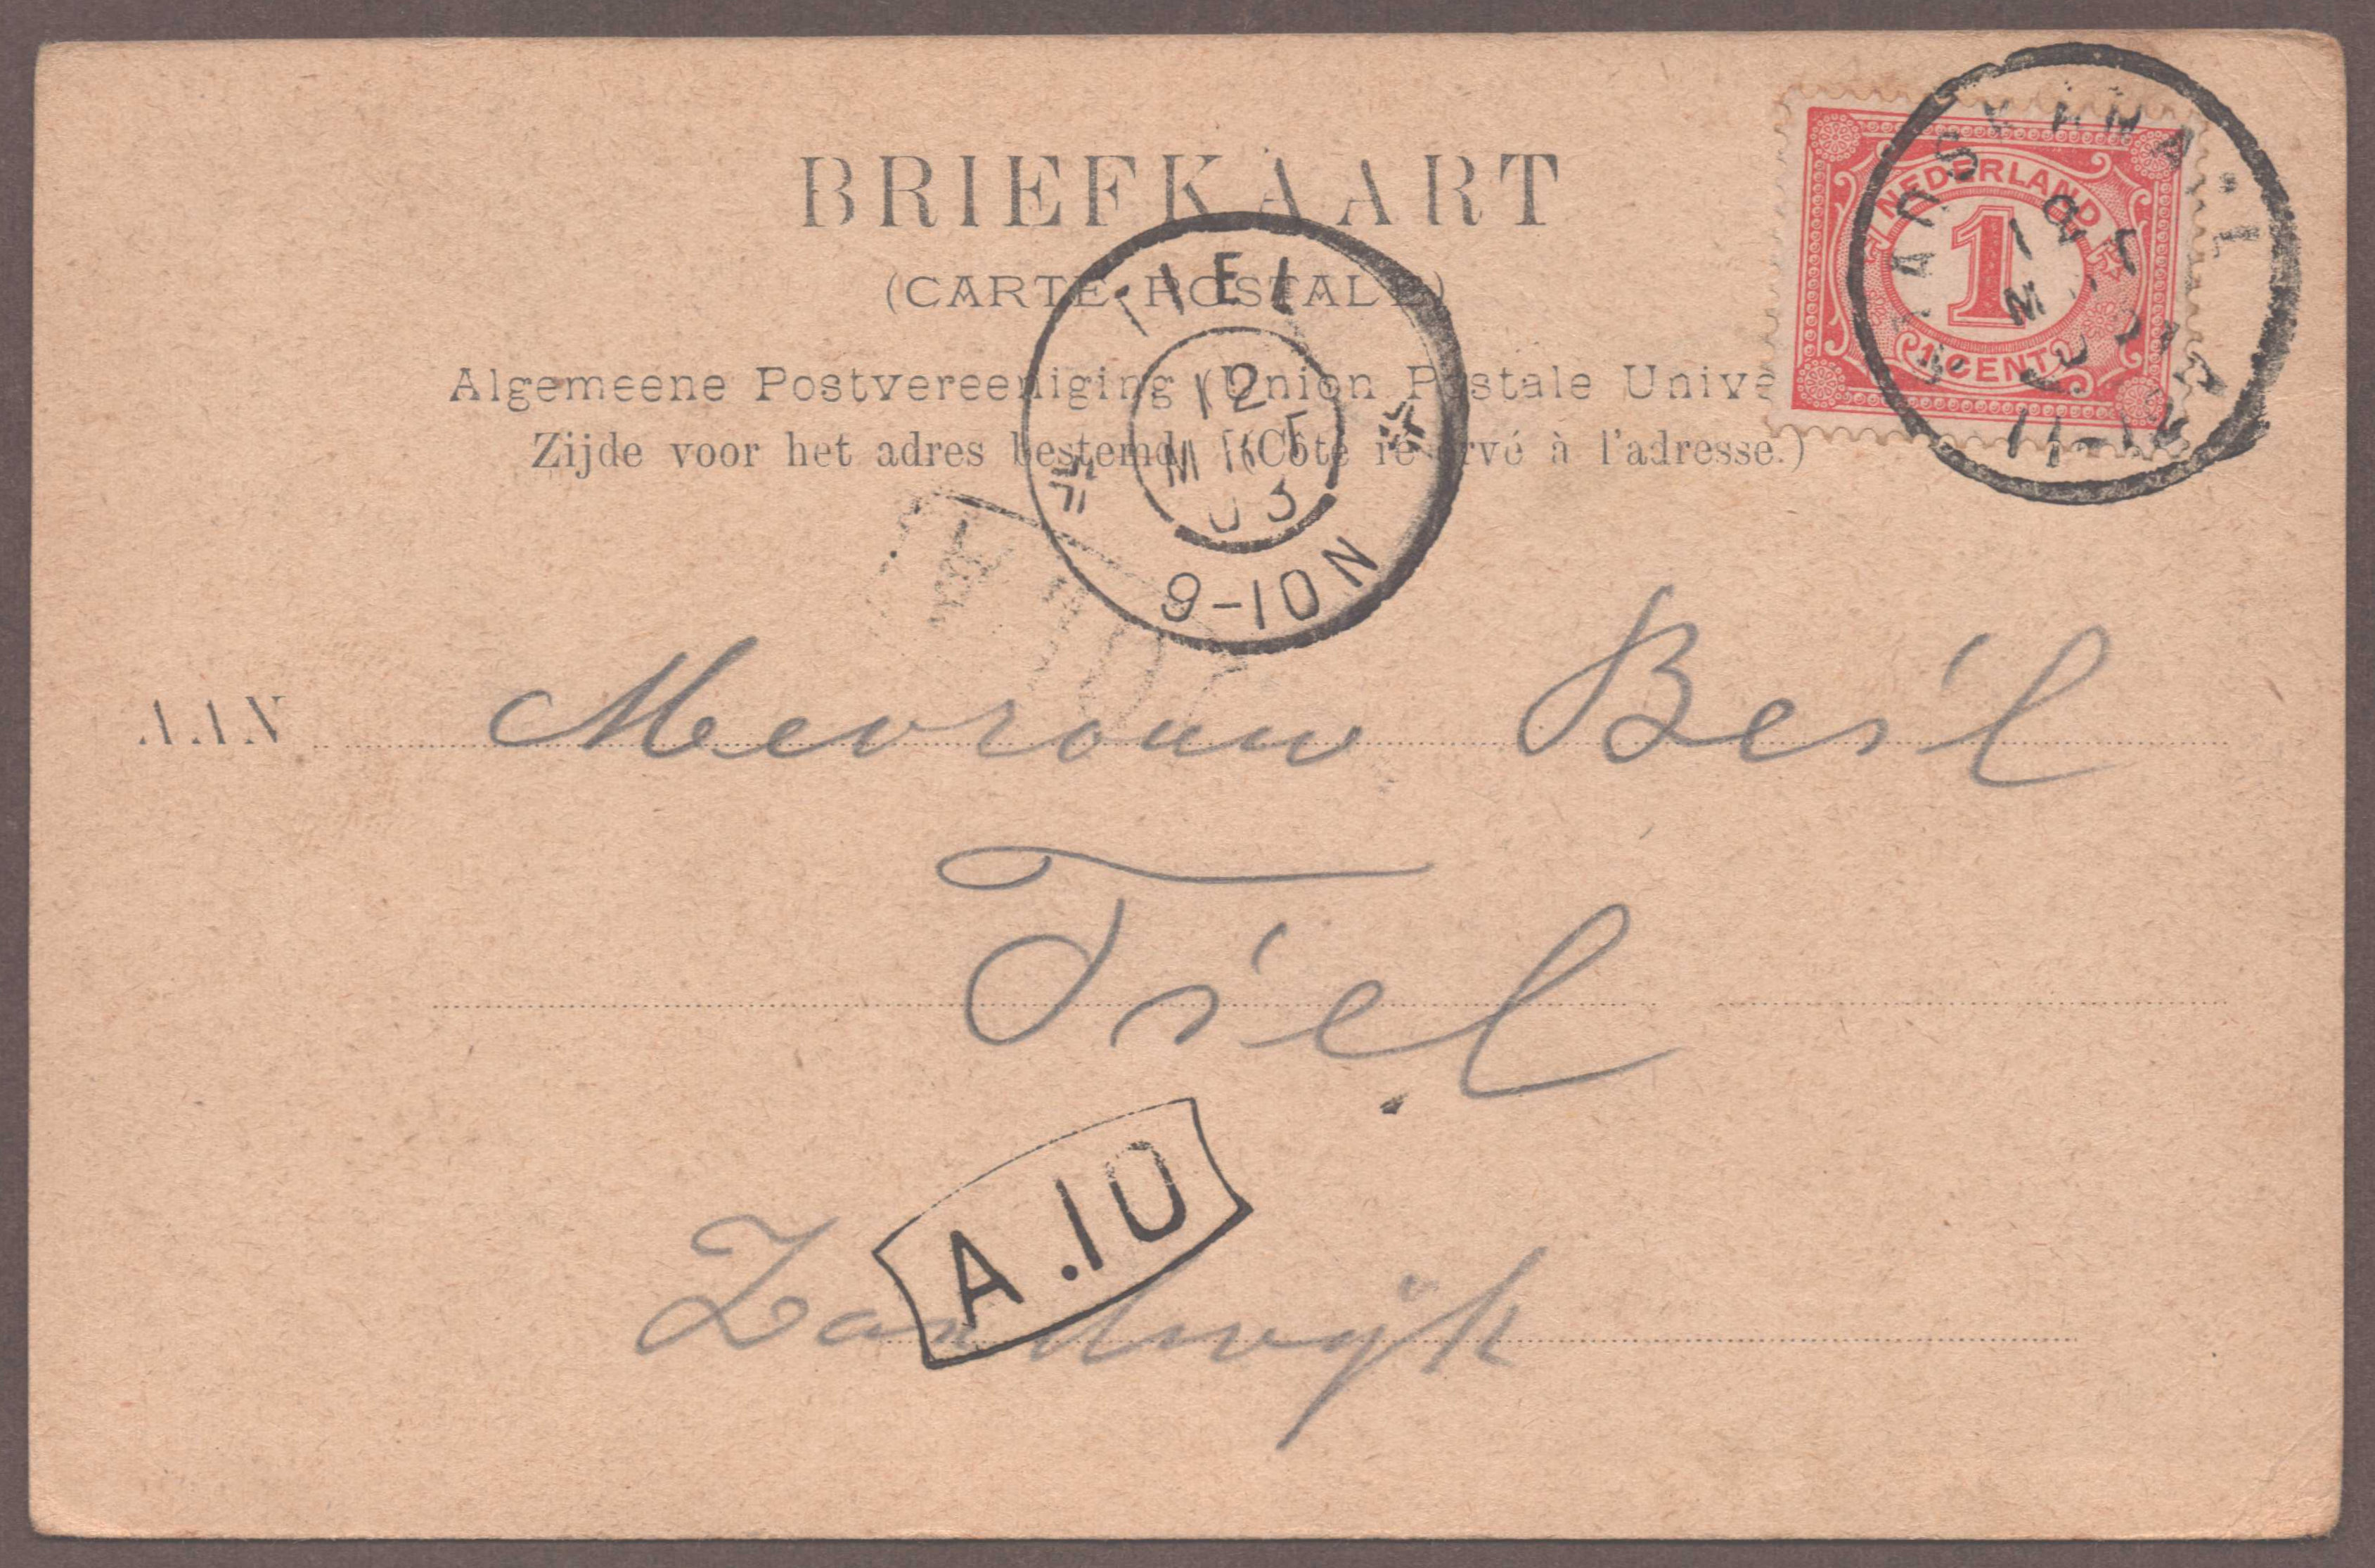 BRIEFKAART
(CARTE POSTALE)
Algemeene Postvereeniging (Union Postale Unive
Zijde voor het adres bestemd. (Côté réservé à l'adresse.)
NEDERLAND
1
1 CENT
11-12
TIEL
12
MRT
03
9-10N
A.10
AAN Mevrouw
Tiel
A.10
Zandwijk